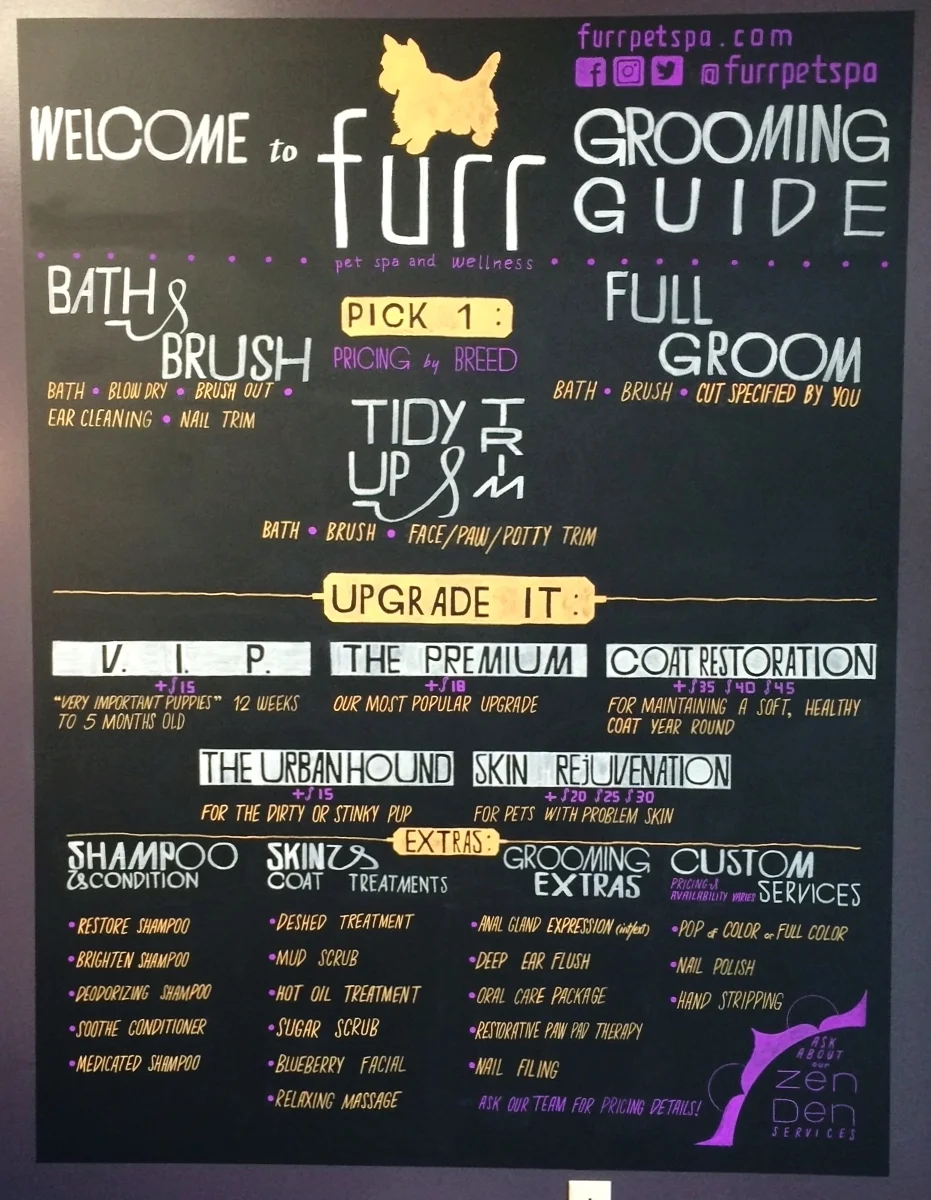 furrpetspa.com
@furrpetspa
WELCOME to furr
pet spa and wellness
GROOMING
GUIDE
BATH &
BRUSH
BATH • BLOW DRY • BRUSH OUT •
EAR CLEANING • NAIL TRIM
PICK 1:
PRICING by BREED
FULL
GROOM
BATH • BRUSH • CUT SPECIFIED BY YOU
TIDY
UP & TRIM
BATH • BRUSH • FACE/PAW/POTTY TRIM
UPGRADE IT:
V. I. P.
+$15
"VERY IMPORTANT PUPPIES" 12 WEEKS
TO 5 MONTHS OLD
THE PREMIUM
+$18
OUR MOST POPULAR UPGRADE
COAT RESTORATION
+$35 $40 $45
FOR MAINTAINING A SOFT, HEALTHY
COAT YEAR ROUND
THE URBAN HOUND
+$15
FOR THE DIRTY OR STINKY PUP
SKIN REJUVENATION
+$20 $25 $30
FOR PETS WITH PROBLEM SKIN
EXTRAS:
SHAMPOO
& CONDITION
• RESTORE SHAMPOO
• BRIGHTEN SHAMPOO
• DEODORIZING SHAMPOO
• SOOTHE CONDITIONER
• MEDICATED SHAMPOO
SKIN &
COAT TREATMENTS
• DESHED TREATMENT
• MUD SCRUB
• HOT OIL TREATMENT
• SUGAR SCRUB
• BLUEBERRY FACIAL
• RELAXING MASSAGE
GROOMING
EXTRAS
• ANAL GLAND EXPRESSION (int/ext)
• DEEP EAR FLUSH
• ORAL CARE PACKAGE
• RESTORATIVE PAW PAD THERAPY
• NAIL FILING
ASK OUR TEAM FOR PRICING DETAILS!
CUSTOM
SERVICES
PRICING &
AVAILABILITY VARIES
• POP of COLOR or FULL COLOR
• NAIL POLISH
• HAND STRIPPING
ASK
ABOUT
our
Zen
Den
SERVICES